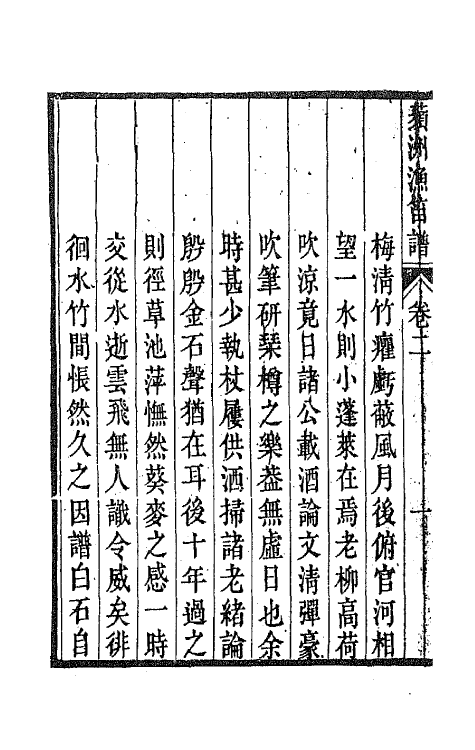 蘋洲漁笛譜 卷二 十
梅清竹癯虧蔽風月後俯官河相
望一水則小蓬萊在焉老柳高荷
吹涼竟日諸公載酒論文清彈豪
吹筆研琴樽之樂葢無虛日也余
時甚少執杖屨供洒掃諸老緒論
殷殷金石聲猶在耳後十年過之
則徑草池萍憮然葵麥之感一時
交從水逝雲飛無人識令威矣徘
徊水竹間悵然久之因譜白石自